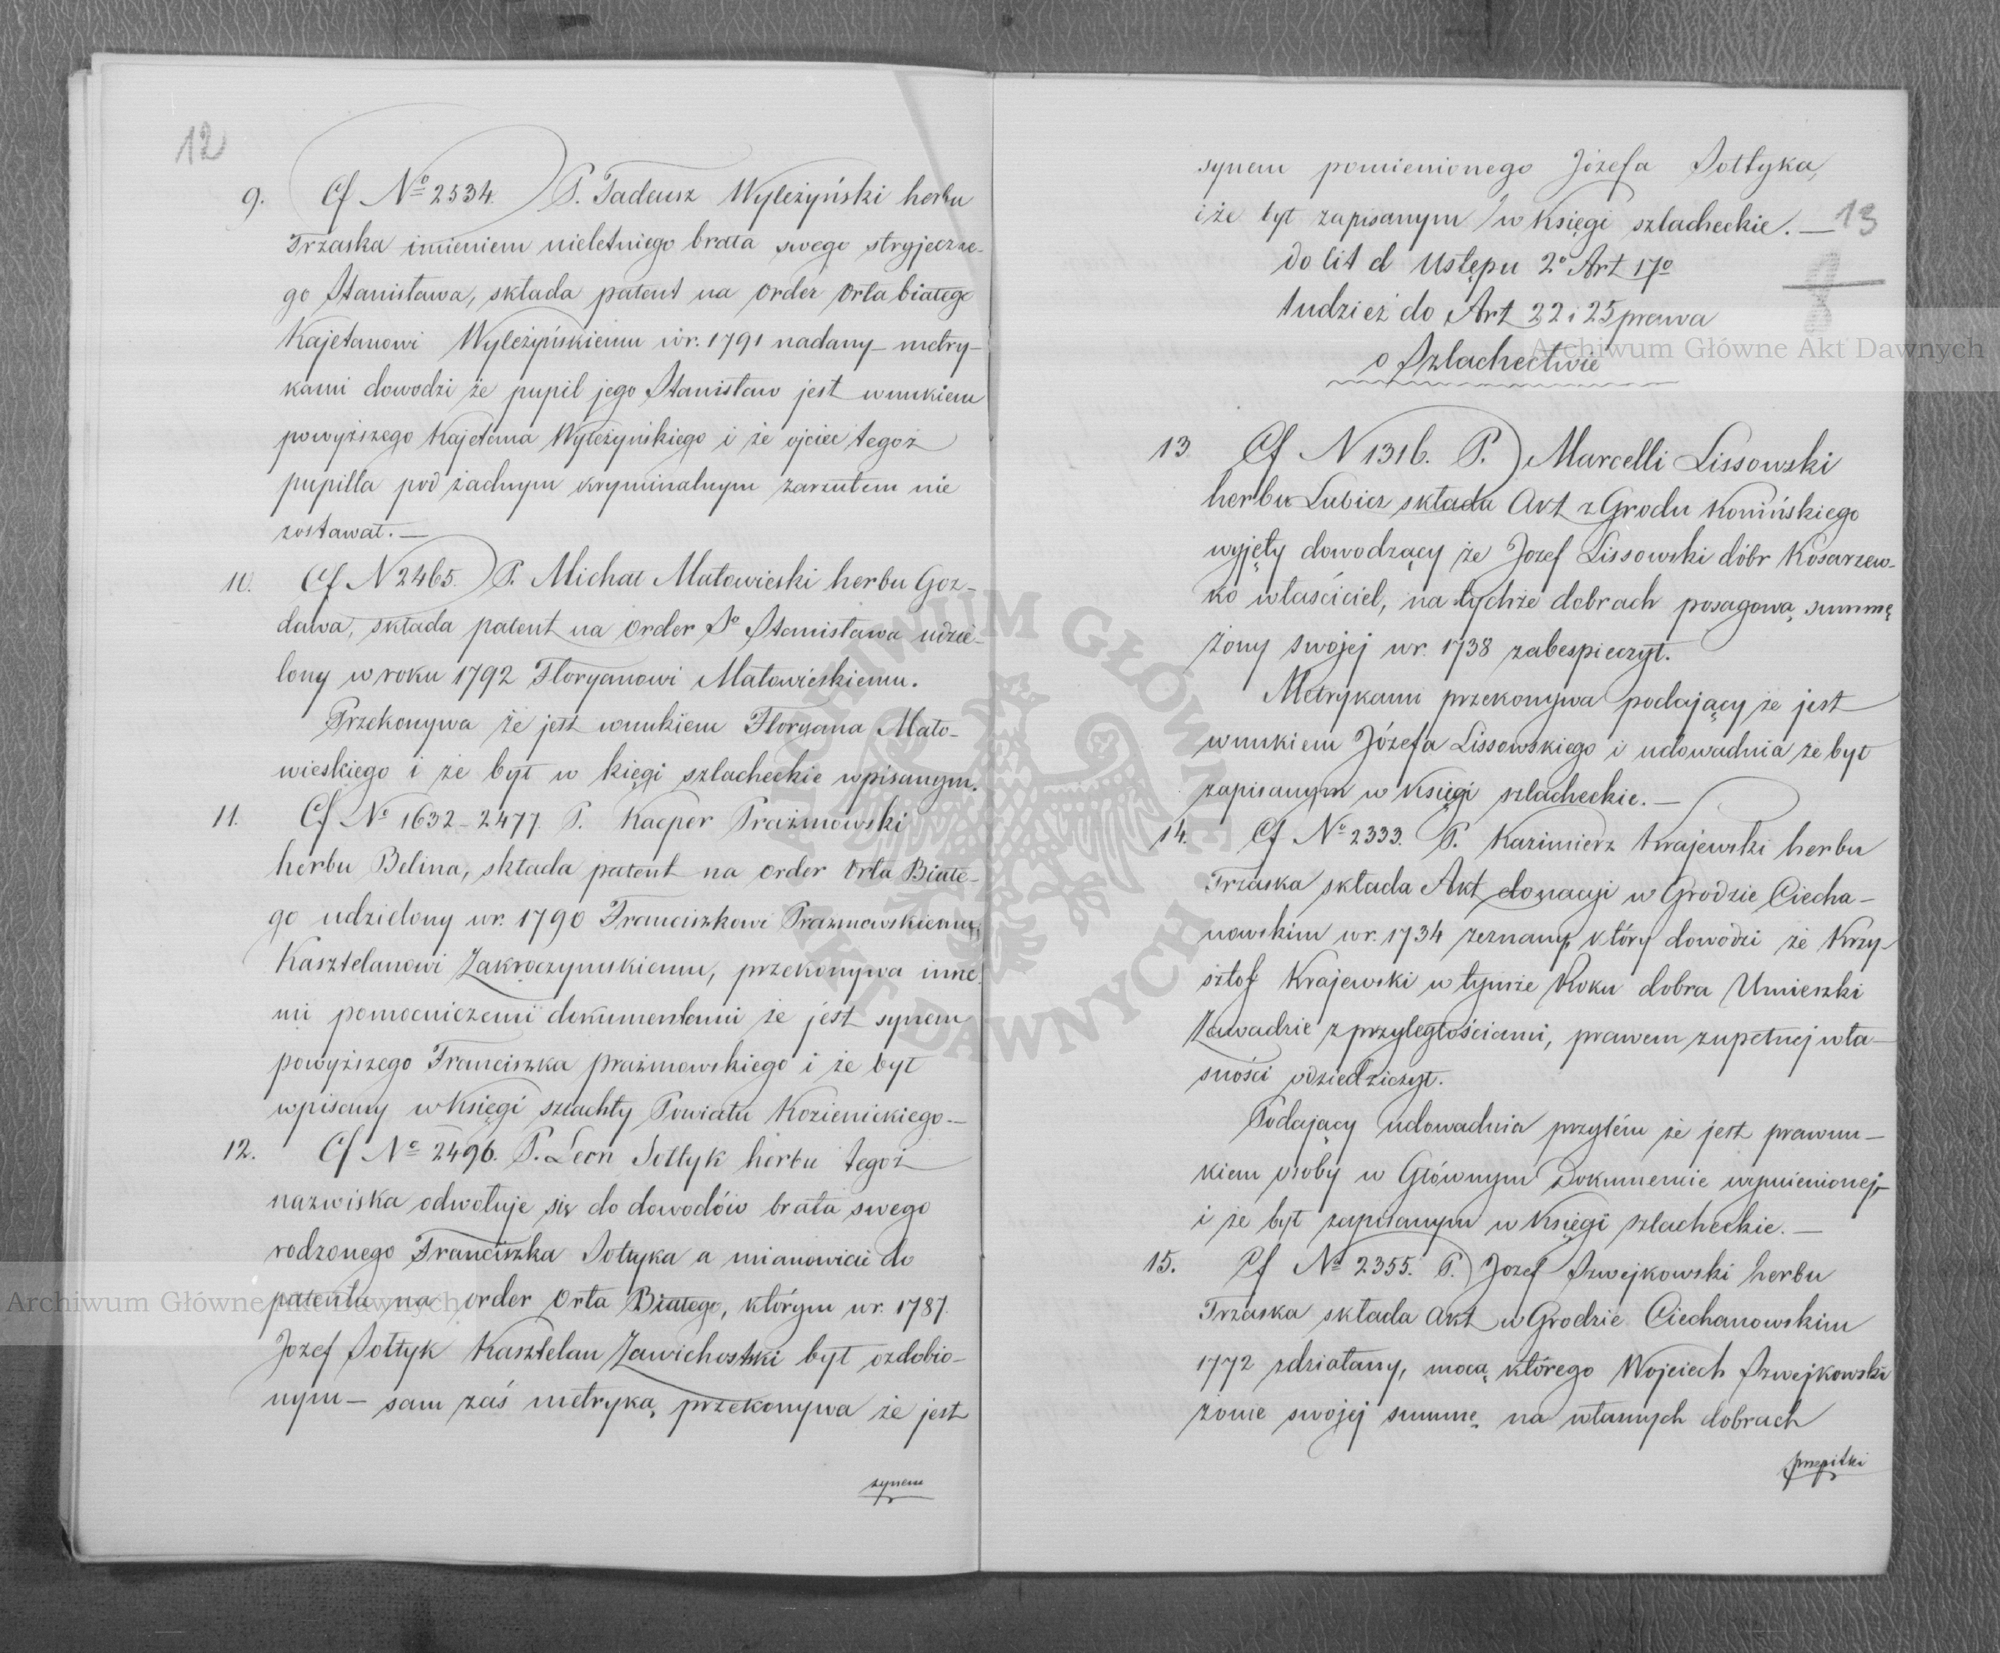 12
9. Cf Nº 2534. P. Tadeusz Wyleżyński herbu
Trzaska imieniem nieletniego brata swego stryjeczne-
go Stanisława, składa patent na order Orła białego
Kajetanowi Wyleżyńskiemu w r. 1791 nadany – metry-
kami dowodzi że pupil jego Stanisław jest wnukiem
powyższego Kajetana Wyleżyńskiego i że ojciec tegoż
pupilla pod żadnym kryminalnym zarzutem nie
zostawał. —
10. Cf N 2465. P. Michał Małowieski herbu Goz-
dawa, składa patent na order Sº Stanisława udzie-
lony w roku 1792 Floryanowi Małowieskiemu.
Przekonywa że jest wnukiem Floryana Mało-
wieskiego i że był w kięgi szlacheckie wpisanym.
11. Cf Nº 1632 – 2477. P. Kacper Prażmowski
herbu Belina, składa patent na order Orła Białe-
go udzielony w r. 1790 Franciszkowi Prażmowskiemu,
Kasztelanowi Zakroczymskiemu, przekonywa inne-
mi pomocniczemi dokumentami że jest synem
powyższego Franciszka prażmowskiego i że był
wpisany w Księgi szlachty Powiatu Kozienickiego —
12. Cf Nº 2496. P. Leon Sołtyk herbu tegoż
nazwiska odwołuje się do dowodów brata swego
rodzonego Franciszka Sołtyka a mianowicie do
patentu na order Orła Białego, którym w r. 1787.
Jozef Sołtyk Kasztelan Zawichostski był ozdobio-
nym – sam zaś metryką przekonywa że jest
synem
synem pomienionego Józefa Sołtyka,
i że był zapisanym w Księgi szlacheckie. —
13
do lit d Ustępu 2º Art 17º
tudzież do Art 22 i 25 prawa
o Szlachectwie
13. Cf N 1316. P. Marcelli Lissowski
herbu Lubicz składa Akt z Grodu Konińskiego
wyjęty dowodzący że Jozef Lissowski dóbr Kosarzew-
ko właściciel, na tychże dobrach posagową summę
żony swojej w r. 1738 zabespieczył.
Metrykami przekonywa podający że jest
wnukiem Józefa Lissowskiego i udowadnia że był
zapisanym w Księgi szlacheckie. —
14. Cf Nº 2333. P. Kazimierz Krajewski herbu
Trzaska składa Akt donacyi w Grodzie Ciecha-
nowskim w r. 1734 zeznany, który dowodzi że Krzy-
sztof Krajewski w tymże Roku dobra Umieszki
Zawadzie z przyległościami, prawem zupełnej wła-
sności odziedziczył.
Podający udowadnia przytém że jest prawnu-
kiem osoby w Głównym Dokumencie wymienionej,
i że był zapisanym w Księgi szlacheckie. —
15. Cf Nº 2355. P. Jozef Szwejkowski herbu
Trzaska składa Akt w Grodzie Ciechanowskim
1772 zdziałany, mocą którego Wojciech Szwejkowski
żonie swojej summę na własnych dobrach
przepitki
Archiwum Główne Akt Dawnych
Archiwum Główne Akt Dawnych
ARCHIWUM GŁÓWNE AKT DAWNYCH